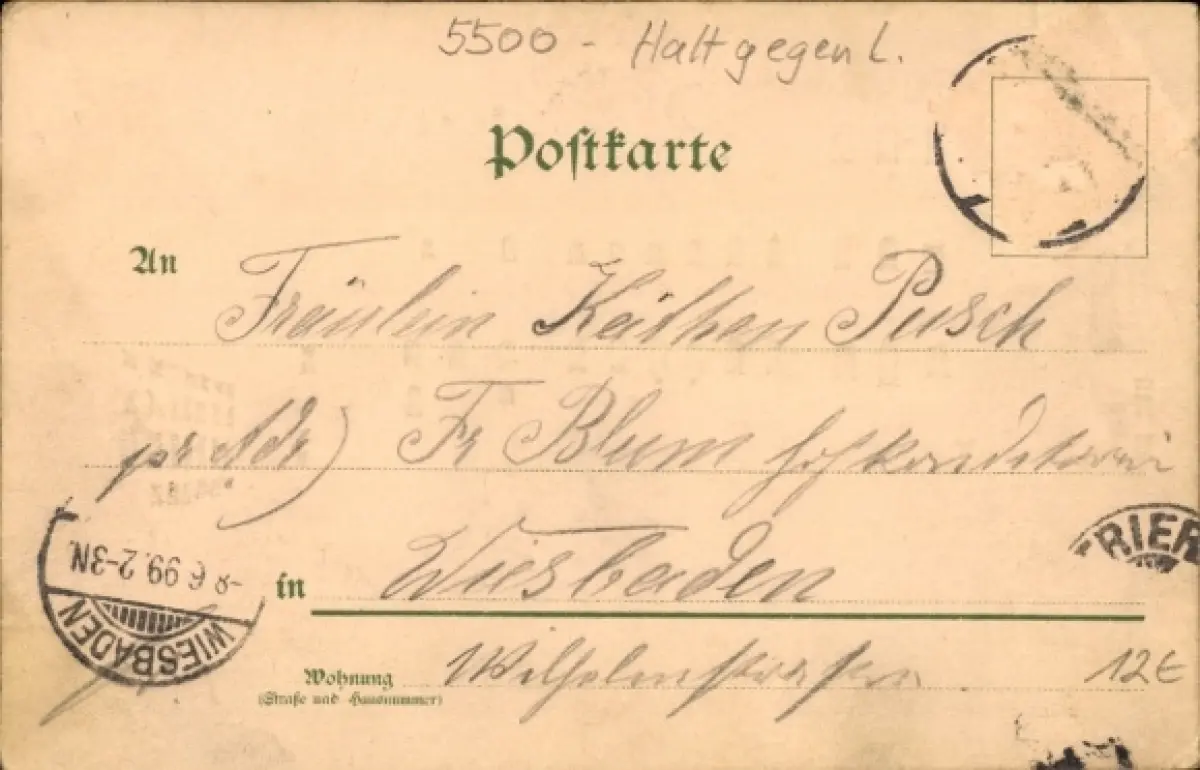 5500 - Halt gegen L.
Postkarte
An Fräulein Käthen Pusch
pr Adr) Fr Blum Hofkonditorei
in Wiesbaden
Wohnung Wilhelmstrasse
(Straße und Hausnummer)
12€
WIESBADEN
-8.6.99.2-3N.
TRIER